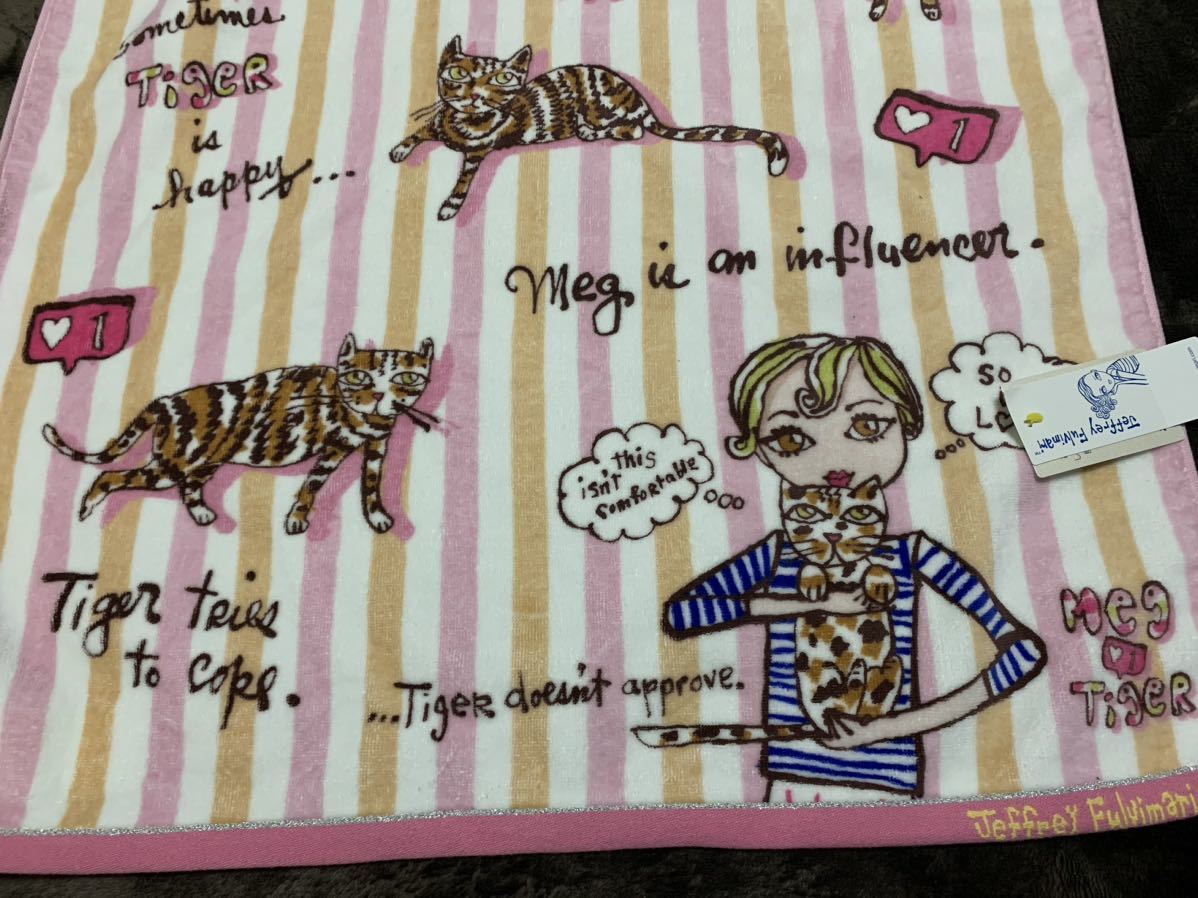 sometimes
TIGER
is
happy...
1
Meg is an influencer.
1
this
isn't
comfortable
SO
Jeffrey Fulvimari™
Tiger tries
to cope.
...Tiger doesn't approve.
Meg
1
TIGER
Jeffrey Fulvimari